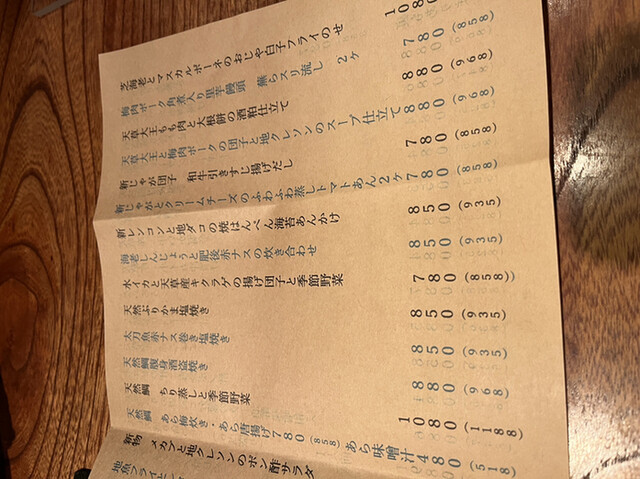 芝海老とマスカルポーネのおじや白子フライのせ 1080
梅肉ポーク角煮入り里芋饅頭 蕪らスリ流し 2ヶ 780(858)
天草大王もも肉と大根餅の酒粕仕立て 880(968)
天草大王と梅肉ポークの団子と地クレソンのスープ仕立て 880(968)
新じゃが団子 和牛引きすじ揚げだし 780(858)
新じゃがとクリームチーズのふわふわ蒸しトマトあん2ヶ 780(858)
新レンコンと地ダコの焼はんぺん海苔あんかけ 850(935)
海老しんじょうと肥後赤ナスの炊き合わせ 850(935)
水イカと天草産キクラゲの揚げ団子と季節野菜 780(858)
天然ぶりかま塩焼き 850(935)
太刀魚赤ナス巻き塩焼き 850(935)
天然鯛腹身酒盗焼き 880(968)
天然鯛 ちり蒸しと季節野菜 1080(1188)
天然鯛 あら梅炊き・あら唐揚げ780(858) あら味噌汁480(518)
新物 メカブと地クレソンのポン酢サラダ
地魚フライ